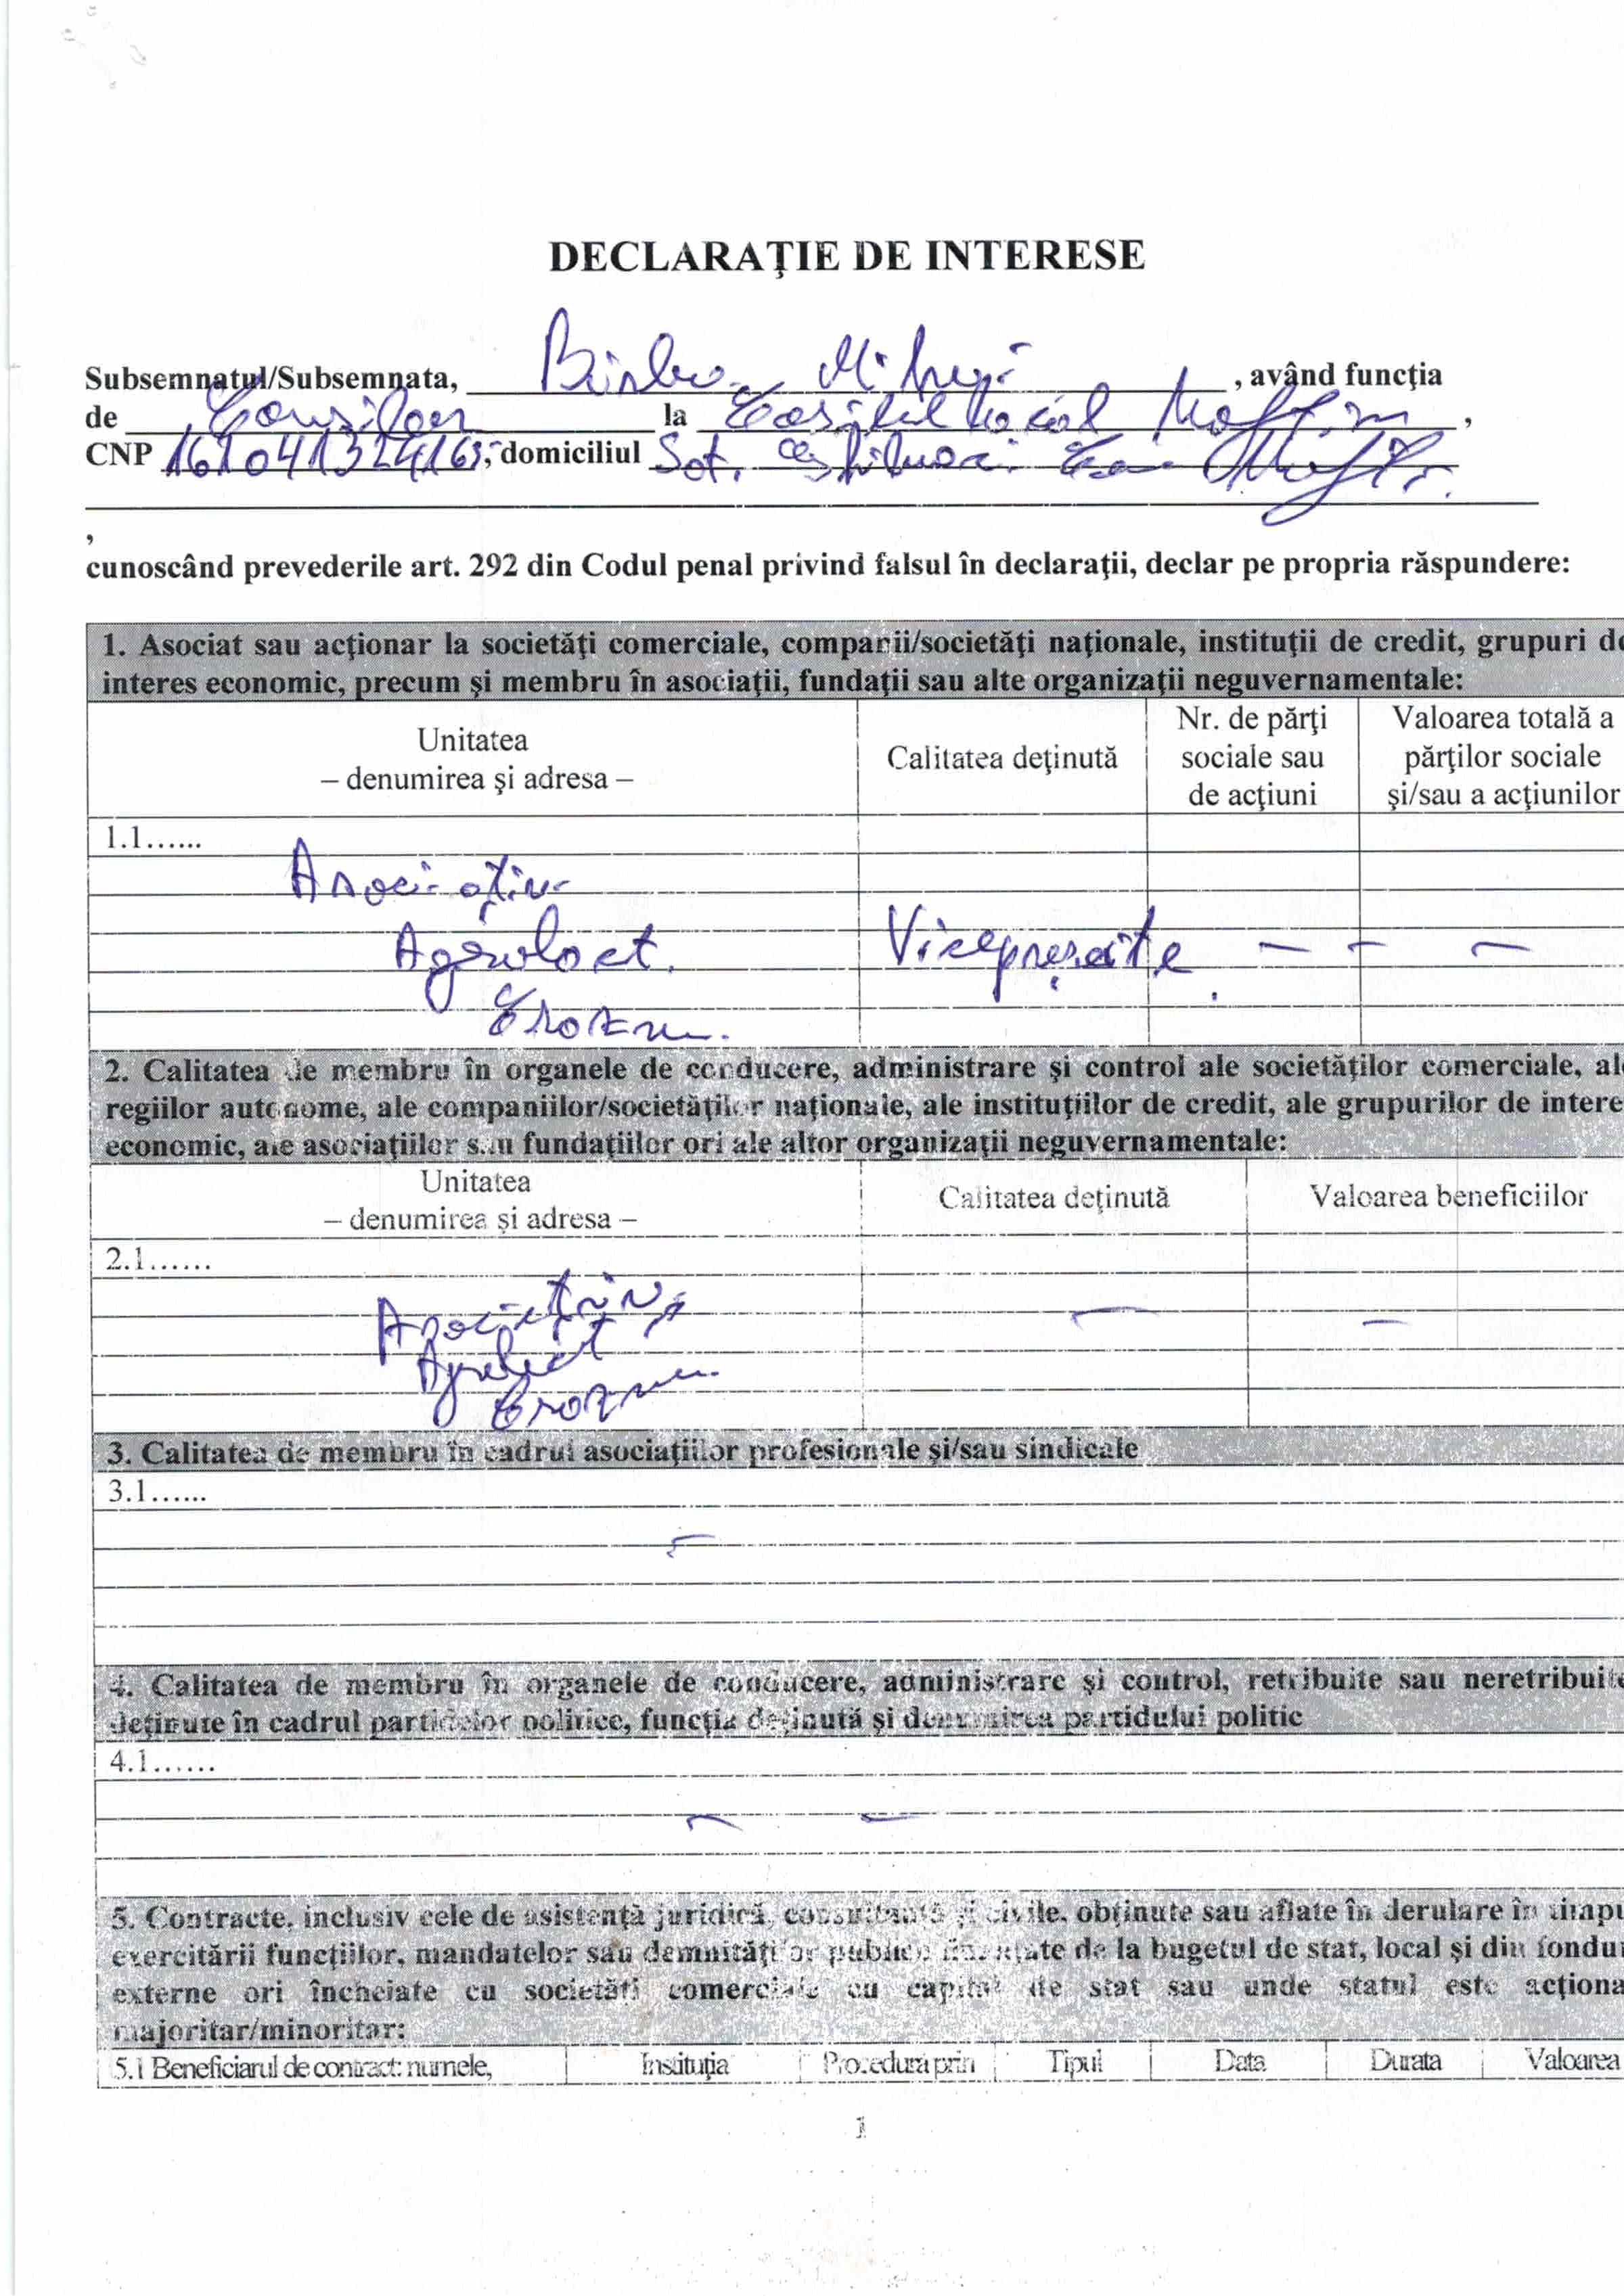 DECLARAŢIE DE INTERESE
Subsemnatul/Subsemnata, Mihai , având funcţia
de Consilier la Local Moftin ,
CNP , domiciliul Sat.
,
cunoscând prevederile art. 292 din Codul penal privind falsul în declaraţii, declar pe propria răspundere:
1. Asociat sau acţionar la societăţi comerciale, companii/societăţi naţionale, instituţii de credit, grupuri de
interes economic, precum şi membru în asociaţii, fundaţii sau alte organizaţii neguvernamentale:
Unitatea
– denumirea şi adresa –
Calitatea deţinută
Nr. de părţi
sociale sau
de acţiuni
Valoarea totală a
părţilor sociale
şi/sau a acţiunilor
1.1......
— — —
2. Calitatea de membru în organele de conducere, administrare şi control ale societăţilor comerciale, ale
regiilor autonome, ale companiilor/societăţilor naţionale, ale instituţiilor de credit, ale grupurilor de interes
economic, ale asociaţiilor sau fundaţiilor ori ale altor organizaţii neguvernamentale:
Unitatea
– denumirea şi adresa –
Calitatea deţinută
Valoarea beneficiilor
2.1......
— —
3. Calitatea de membru în cadrul asociaţiilor profesionale şi/sau sindicale
3.1......
—
4. Calitatea de membru în organele de conducere, administrare şi control, retribuite sau neretribuite
deţinute în cadrul partidelor politice, funcţia deţinută şi denumirea partidului politic
4.1......
— —
5. Contracte, inclusiv cele de asistenţă juridică, consultanţă şi civile, obţinute sau aflate în derulare în timpul
exercitării funcţiilor, mandatelor sau demnităţilor publice finanţate de la bugetul de stat, local şi din fonduri
externe ori încheiate cu societăţi comerciale cu capital de stat sau unde statul este acţionar
majoritar/minoritar:
5.1 Beneficiarul de contract: numele, Instituţia Procedura prin Tipul Data Durata Valoarea
1